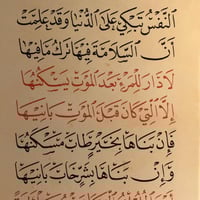 النَّفْسُ تَبْكِي عَلَى الدُّنْيَا وَقَدْ عَلِمَتْ
أَنَّ السَّلَامَةَ فِيهَا تَرْكُ مَا فِيهَا
لَا دَارَ لِلْمَرْءِ بَعْدَ الْمَوْتِ يَسْكُنُهَا
إِلَّا الَّتِي كَانَ قَبْلَ الْمَوْتِ بَانِيهَا
فَإِنْ بَنَاهَا بِخَيْرٍ طَابَ مَسْكَنُهَا
وَإِنْ بَنَاهَا بِشَرٍّ خَابَ بَانِيهَا